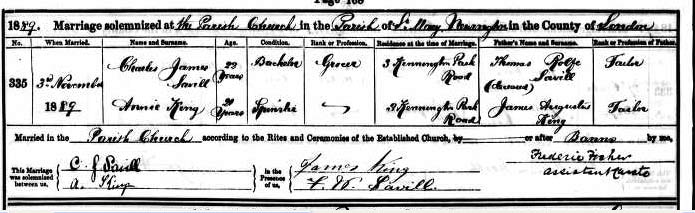 Page 168
1889. Marriage solemnized at the Parish Church in the Parish of St. Mary Newington in the County of London
No. When Married. Name and Surname. Age. Condition. Rank or Profession. Residence at the time of Marriage. Father's Name and Surname. Rank or Profession of Father.
335 3rd November 1889 Charles James Savill 22 Years Bachelor Grocer 3 Kennington Park Road Thomas Rolfe Savill (deceased) Tailor
Annie King Years Spinster 3 Kennington Park Road James Augustus King Tailor
Married in the Parish Church according to the Rites and Ceremonies of the Established Church, by or after Banns by me,
Frederic Fisher
assistant Curate
This Marriage was solemnized between us, C. J. Savill
A. King
In the Presence of us, James King
Savill.